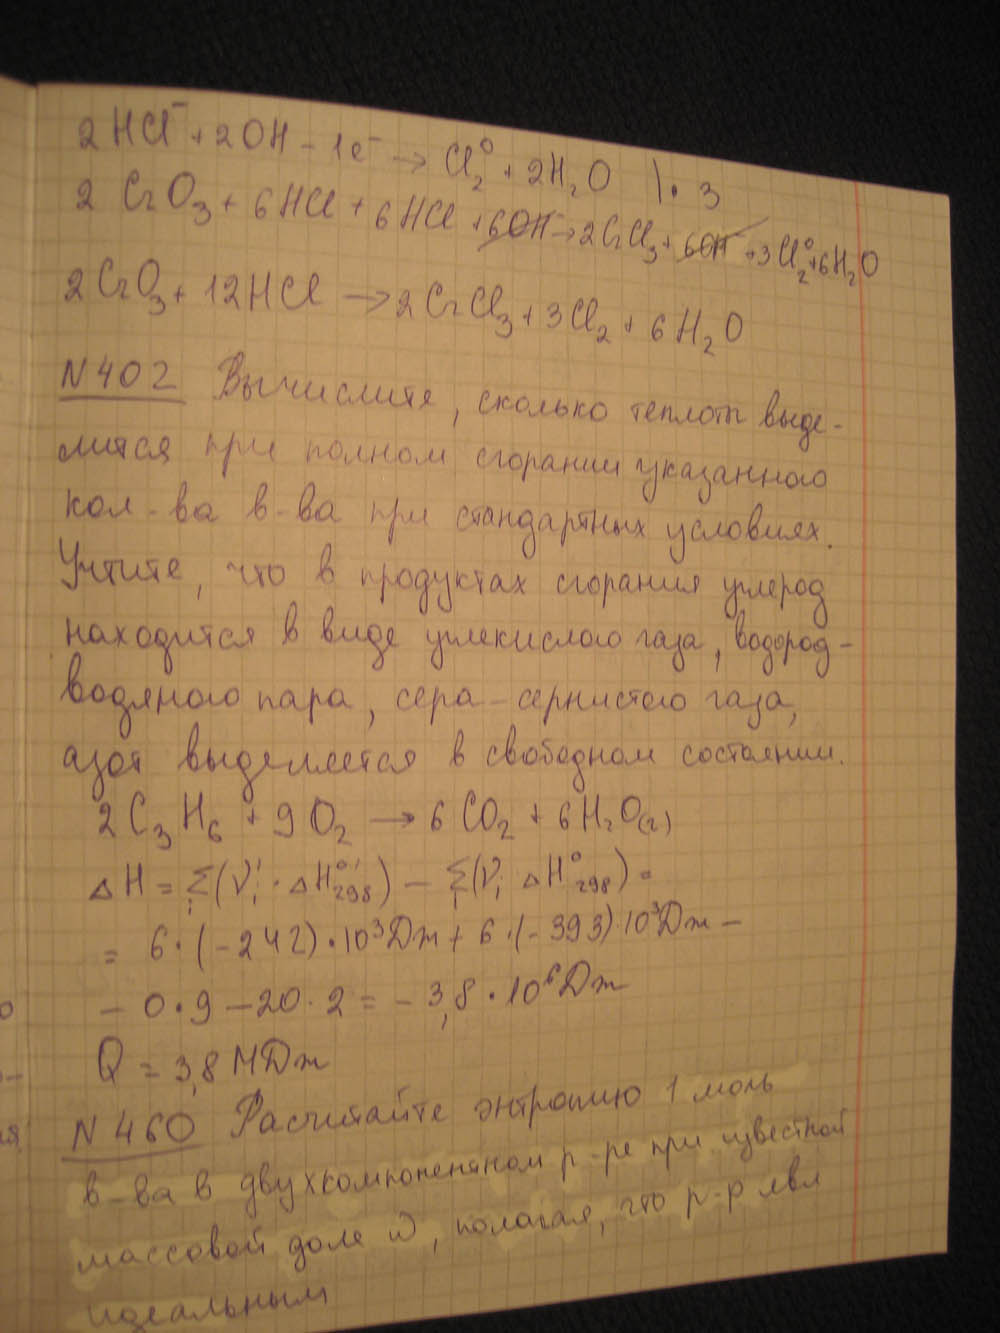 2HCl⁻ + 2OH - 1e⁻ → Cl₂⁰ + 2H₂O | · 3
2 CrO₃ + 6HCl + 6HCl + 6OH⁻ → 2CrCl₃ + 6OH⁻ + 3Cl₂⁰ + 6H₂O
2CrO₃ + 12HCl → 2CrCl₃ + 3Cl₂ + 6H₂O
N 402 Вычислите, сколько теплоты выде-
лится при полном сгорании указанного
кол-ва в-ва при стандартных условиях.
Учтите, что в продуктах сгорания углерод
находится в виде углекислого газа, водород-
водяного пара, сера - сернистого газа,
азот выделяется в свободном состоянии.
2C₃H₆ + 9O₂ → 6CO₂ + 6H₂O(г)
ΔH = Σᵢ(νᵢ' · ΔH°'₂₉₈) - Σᵢ(νᵢ ΔH°₂₉₈) =
= 6·(-242)·10³Дж + 6·(-393)·10³Дж -
- 0·9 - 20·2 = - 3,8·10⁶Дж
Q = 3,8 МДж
N 460 Расчитайте энтропию 1 моль
в-ва в двухкомпонентном р-ре при известной
массовой доле ω, полагая, что р-р явл
идеальным